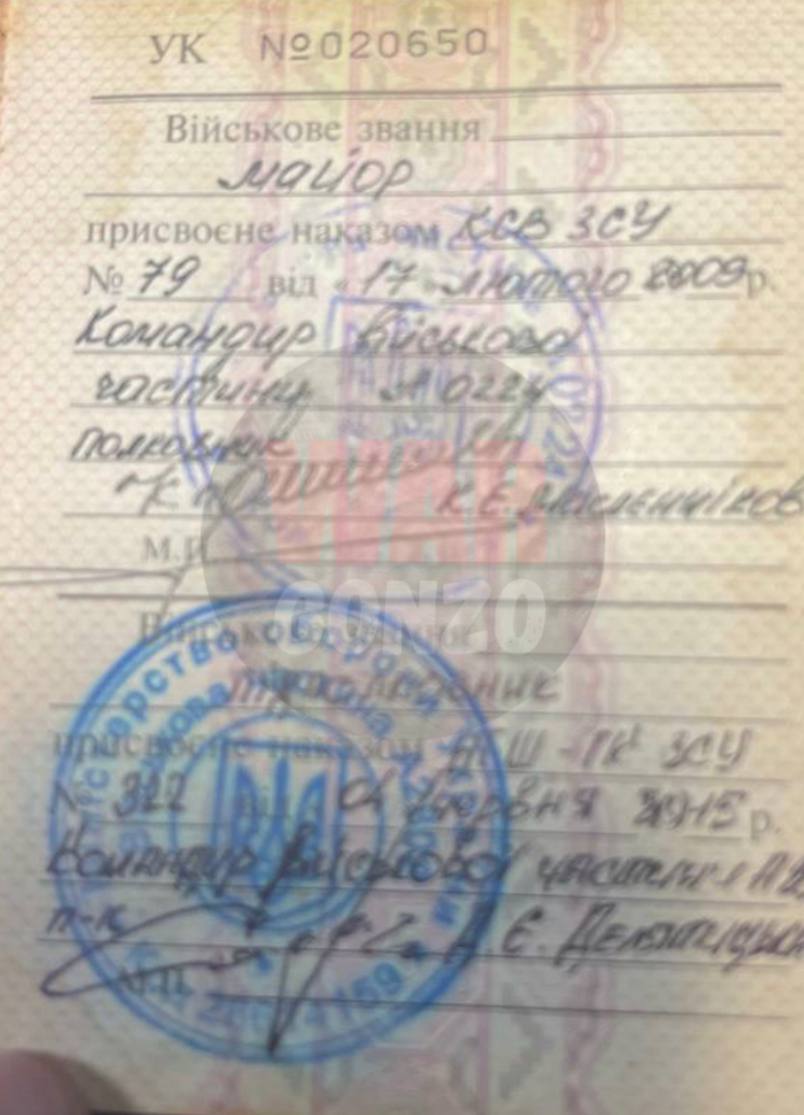 УК №020650
Військове звання
майор
присвоєне наказом КСВ ЗСУ
№ 79 від «17» лютого 2009 р.
Командир військової
частини А 0224
полковник
К.Є. Масленніков
М.П.
WAR
GONZO
Військове звання
підполковник
присвоєне наказом НГШ - ГК ЗСУ
№ 322 від 04 червня 2015 р.
Командир військової частини А
п-к Д.Є.
М.П.
Міністерство оборони України